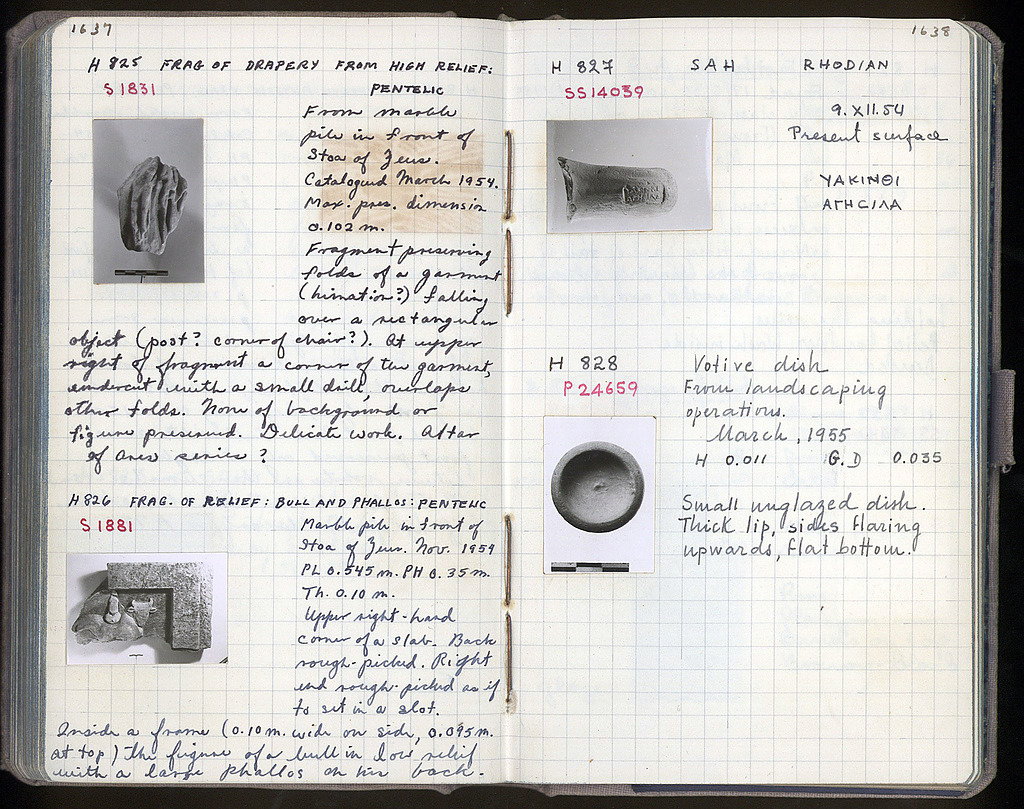 1637
H 825 FRAG OF DRAPERY FROM HIGH RELIEF:
S 1831
PENTELIC
From marble
pile in front of
Stoa of Zeus.
Catalogued March 1954.
Max. pres. dimension
0.102 m.
Fragment preserving
folds of a garment
(himation?) falling
over a rectangular
object (post? corner of chair?). At upper
right of fragment a corner of the garment,
undercut with a small drill, overlaps
other folds. None of background or
figure preserved. Delicate work. Altar
of Ares series?
H 826 FRAG. OF RELIEF: BULL AND PHALLOS: PENTELIC
S 1881
Marble pile in front of
Stoa of Zeus. Nov. 1954
PL 0.545 m. PH 0.35 m.
Th. 0.10 m.
Upper right-hand
corner of a slab. Back
rough-picked. Right
end rough-picked as if
to set in a slot.
Inside a frame (0.10 m. wide on side, 0.095 m.
at top) the figure of a bull in low relief
with a large phallos on his back.
1638
H 827 SAH RHODIAN
SS14039
9.XII.54
Present surface
ΥΑΚΙΝΘΙ
ΑΓΗΣΙΛΑ
H 828 Votive dish
P 24659
From landscaping
operations.
March, 1955
H 0.011 G.D 0.035
Small unglazed dish.
Thick lip, sides flaring
upwards, flat bottom.